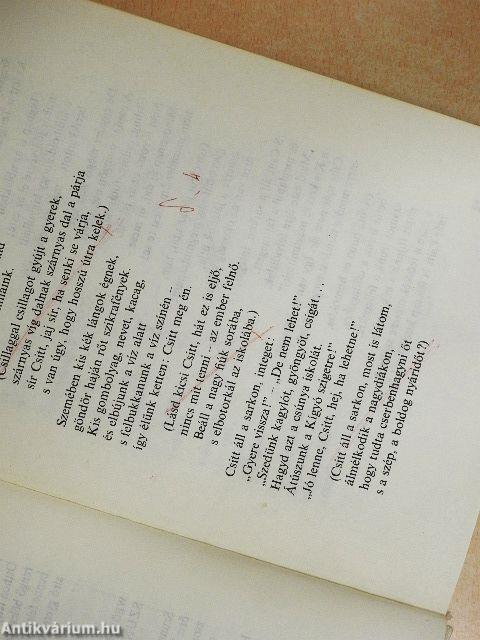 (Csillaggal csillagot gyújt a gyerek,
szárnyas víg dalnak szárnyas dal a párja
sír Csitt, jaj sír, ha senki se várja,
s van úgy, hogy hosszú útra kelek.)
Szemében kis kék lángok égnek,
göndör haján rőt szitrafények.
Kis gombolyag, nevet, kacag,
és elbújunk a víz alatt
s felbukkanunk a víz színén –
így élünk ketten: Csitt meg én.
(Lásd kicsi Csitt, hát ez is eljő,
nincs mit tenni – az ember felnő.
Beáll a nagyfiúk sorába,
s elbotorkál az iskolába.)
Csitt áll a sarkon, integet:
„Gyere vissza!" – „De nem lehet!"
„Szedünk kagylót, gyöngyöt, csigát...
Hagyd azt a csúnya iskolát.
Átúszunk a Kígyó szigetre!"
„Jó lenne, Csitt, hej, ha lehetne!"
(Csitt áll a sarkon, most is látom,
álmélkodik a nagydiákon,
hogy tudta cserbenhagyni őt
s a szép, a boldog nyáridőt?)
Antikvárium.hu